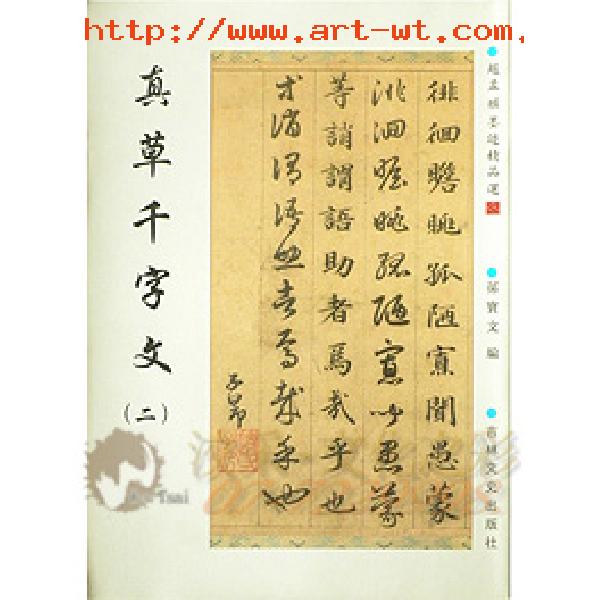 http://www.art-wt.com
趙孟頫墨迹精品選
孫寶文 編
吉林文史出版社
徘徊瞻眺孤陋寡聞愚蒙
徘徊瞻眺孤陋寡聞愚蒙
等誚謂語助者焉哉乎也
等誚謂語助者焉哉乎也
子昂
真草千字文
(二)
Tsai